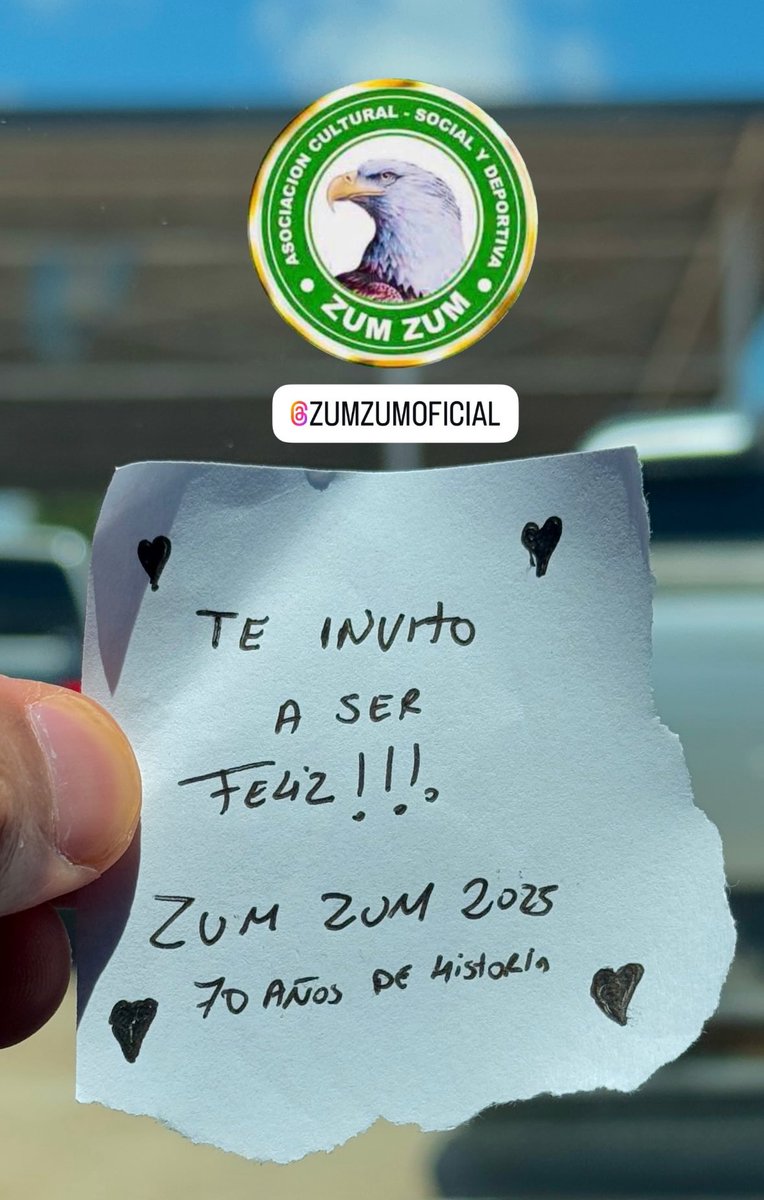 ASOCIACION CULTURAL - SOCIAL Y DEPORTIVA
ZUM ZUM
@ZUMZUMOFICIAL
TE INVITO
A SER
FELIZ!!!
ZUM ZUM 2025
70 AÑOS DE HISTORIA